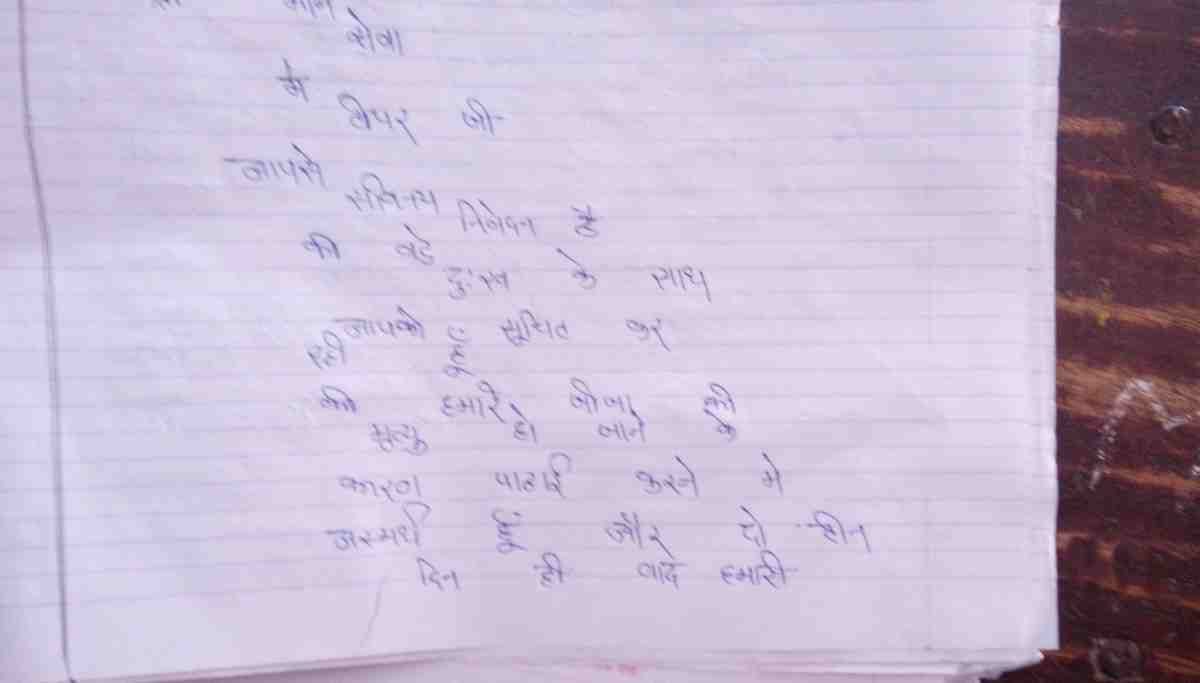 सेवा
मे
टीचर जी
आपसे
सविनय निवेदन है
की बडे
दुःख के साथ
आपको सूचित कर
रही हूँ
की हमारे जीजा की
मृत्यु हो जाने के
कारण पढाई करने मे
असमर्थ हूँ और दो तीन
दिन ही बाद हमारी